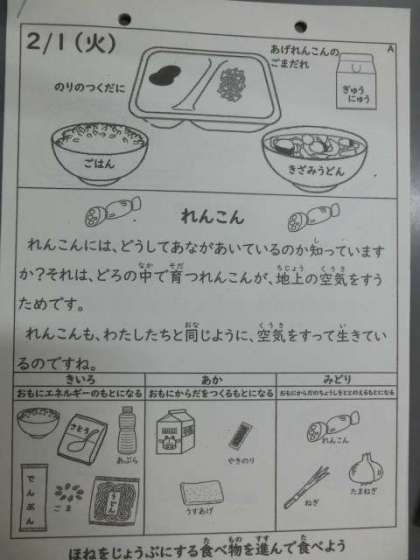 2/1(火)
A
あげれんこんの
ごまだれ
のりのつくだに
ぎゅう
にゅう
ごはん
きざみうどん
れんこん
れんこんには、どうしてあながあいているのか知っています
か?それは、どろの中で育つれんこんが、地上の空気をすう
ためです。
れんこんも、わたしたちと同じように、空気をすって生きてい
るのですね。
きいろ
あか
みどり
おもにエネルギーのもとになる
おもにからだをつくるもとになる
おもにからだのちょうしをととのえるもとになる
さとう
あぶら
やきのり
れんこん
でんぷん
ごま
うどん
うすあげ
ねぎ
たまねぎ
ほねをじょうぶにする食べ物を進んで食べよう